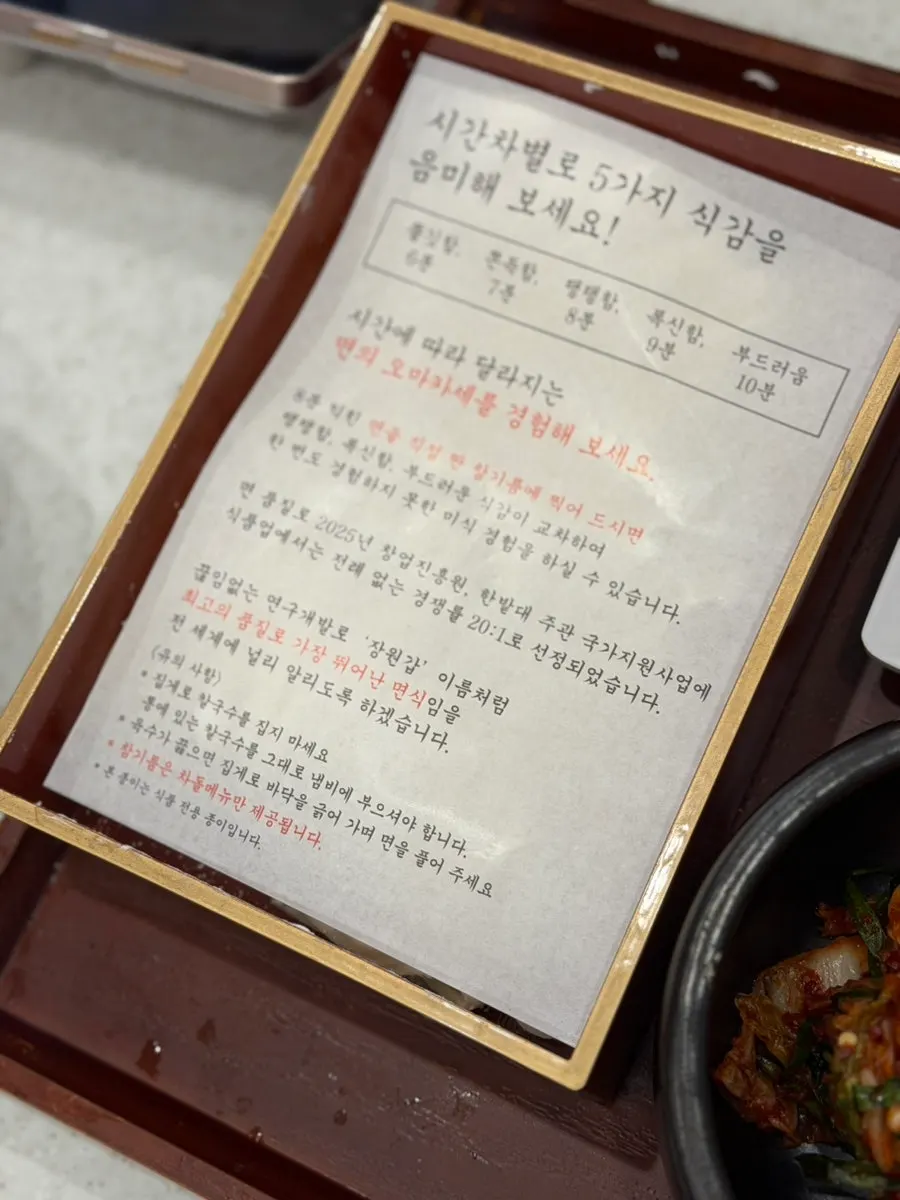 시간차별로 5가지 식감을
음미해 보세요!
쫄깃함, 쫀득함, 탱탱함, 폭신함, 부드러움
6분 7분 8분 9분 10분
시간에 따라 달라지는
면의 오마카세를 경험해 보세요.
8분 익힌 면을 직접 짠 참기름에 찍어 드시면
탱탱함, 폭신함, 부드러운 식감이 교차하여
한 번도 경험하지 못한 미식 경험을 하실 수 있습니다.
면 품질로 2025년 창업진흥원, 한밭대 주관 국가지원사업에
식품업에서는 전례 없는 경쟁률 20:1로 선정되었습니다.
끊임없는 연구개발로 '장원갑' 이름처럼
최고의 품질로 가장 뛰어난 면식임을
전 세계에 널리 알리도록 하겠습니다.
(유의 사항)
* 집게로 칼국수를 집지 마세요
통에 있는 칼국수를 그대로 냄비에 부으셔야 합니다.
* 육수가 끓으면 집게로 바닥을 긁어 가며 면을 풀어 주세요
* 참기름은 차돌메뉴만 제공됩니다.
* 본 종이는 식품 전용 종이입니다.